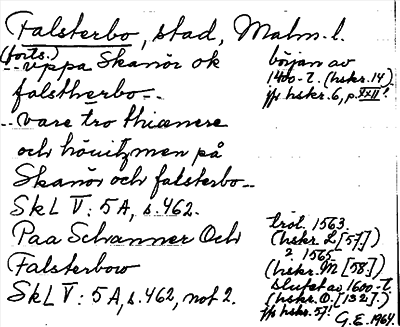 Falsterbo, stad, Malm. l.
(forts.)
-- uppa Skanör ok
falstherbo --
början av
1400-t. (hskr. 14)
jfr hskr. 6, p. XXII!
-- vare tro thiænere
och höuitzmen på
Skanör och falsterbo --
SkL V: 5A, s. 462.
tröl. 1563.
(hskr. L [57])
Paa Schanner Och
Falsterboo
SkL V: 5A, s. 462, not 2.
2. 1565
(hskr. M [58])
slutet av 1600-t.
(hskr. O. [132].)
jfr hskr. 57!
G.E. 1964.